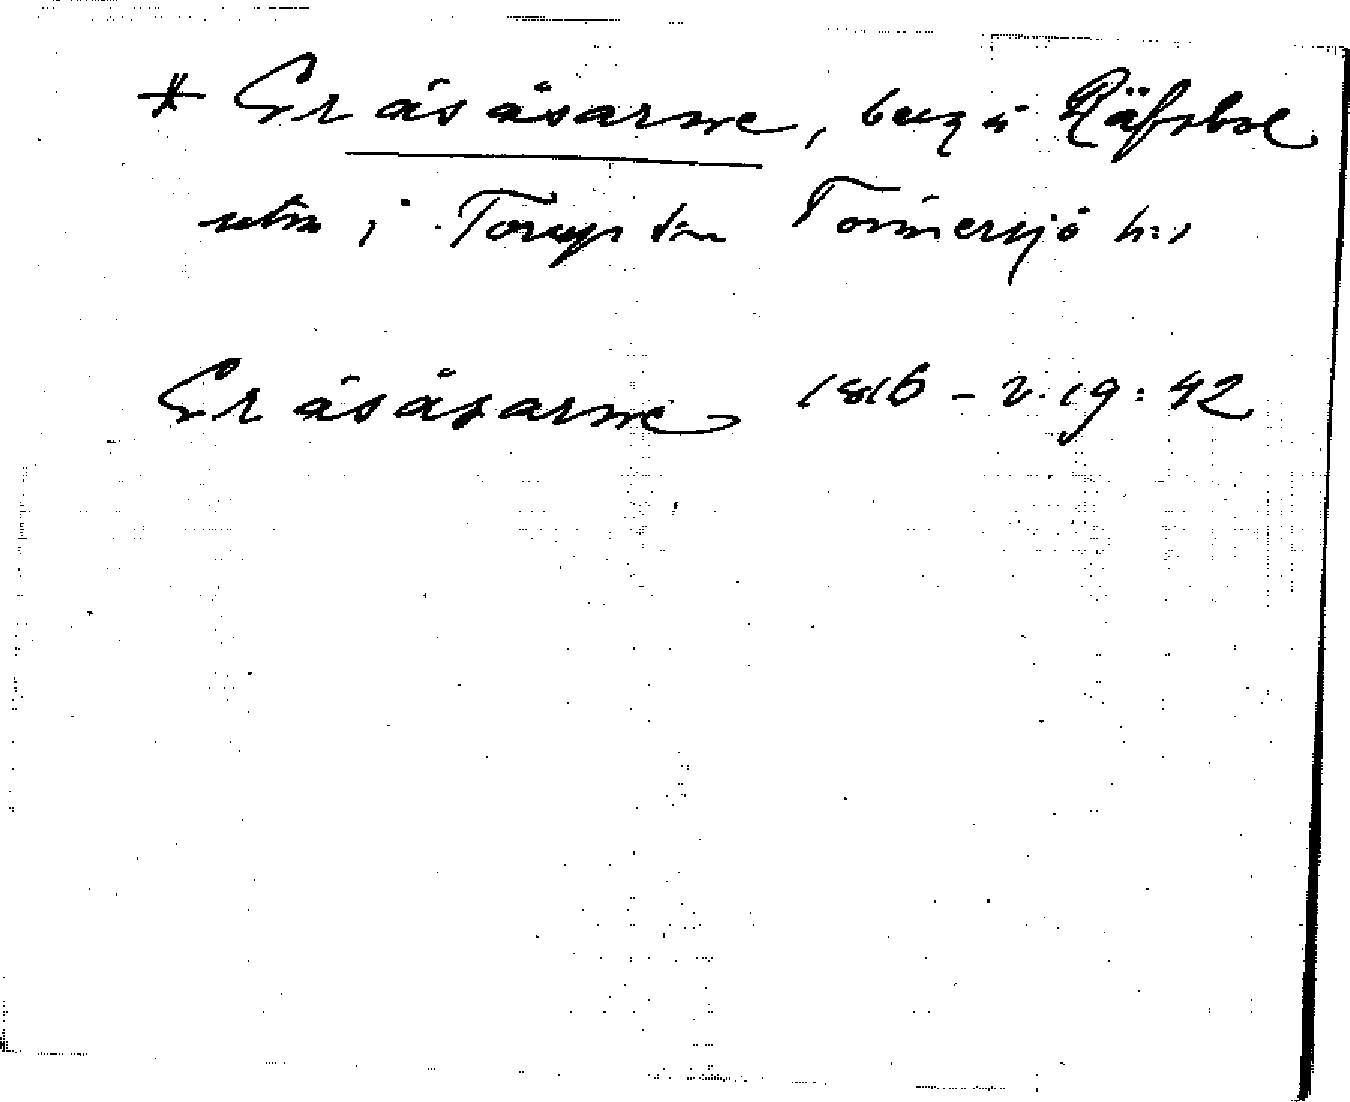 * Gråsåsarne, berg å Räfsbol
utm i Torup sn Tönnersjö h:d
Gråsåsarne 1816 - 2.19:42